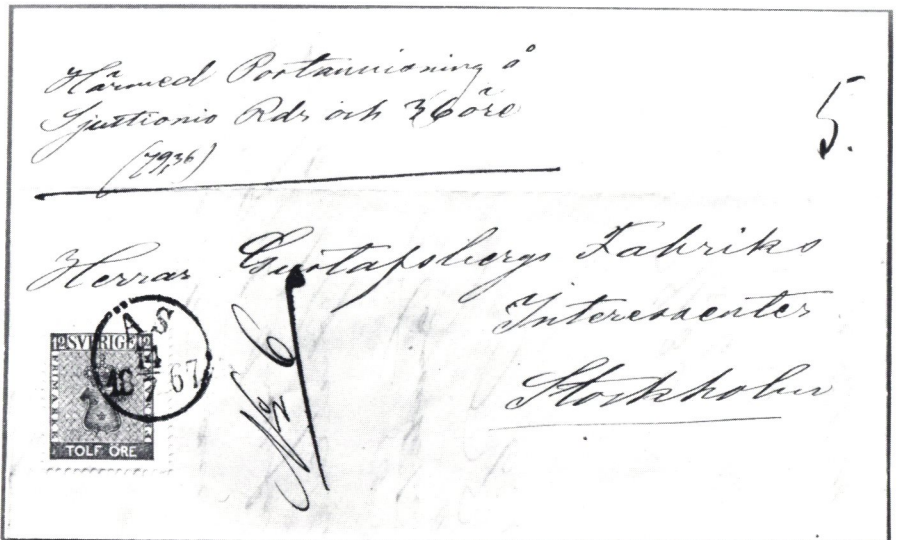 Härmed Postanvisning å
Sjuttionio Rdr och 36 öre
(79,36)
5.
Herrar Gustafsbergs Fabriks
Interessenter
Stockholm
No 6
ÅS
14
18 7 67
12 SVERIGE 12
FRIMÄRKE
TOLF ÖRE